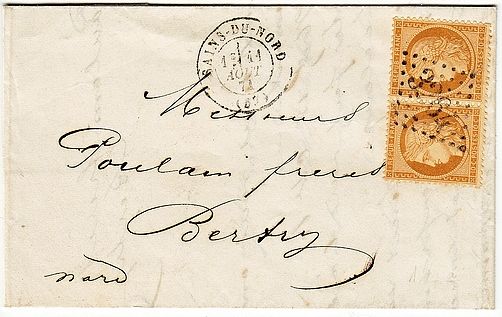 SAINS-DU-NORD
11
AOUT
71
(57)
Messieurs
Poulain frères
Bertry
nord